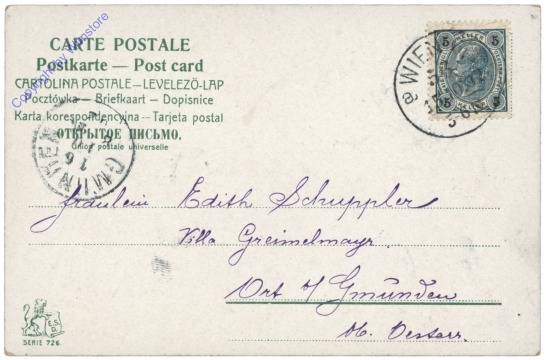 CARTE POSTALE
Postkarte — Post card
CARTOLINA POSTALE — LEVELEZŐ-LAP
Pocztówka — Briefkaart — Dopisnice
Karta korespondencyjna — Tarjeta postal
ОТКРЫТОЕ ПИСЬМО.
Union postale universelle
Copyright by Wnstore
5 HELLER 5
5 5
WIEN
GMUNDEN
Fräulein Edith Schuppler
Villa Greimelmayr
Ort o/ Gmunden
Ob. Oesterr.
SERIE 726.